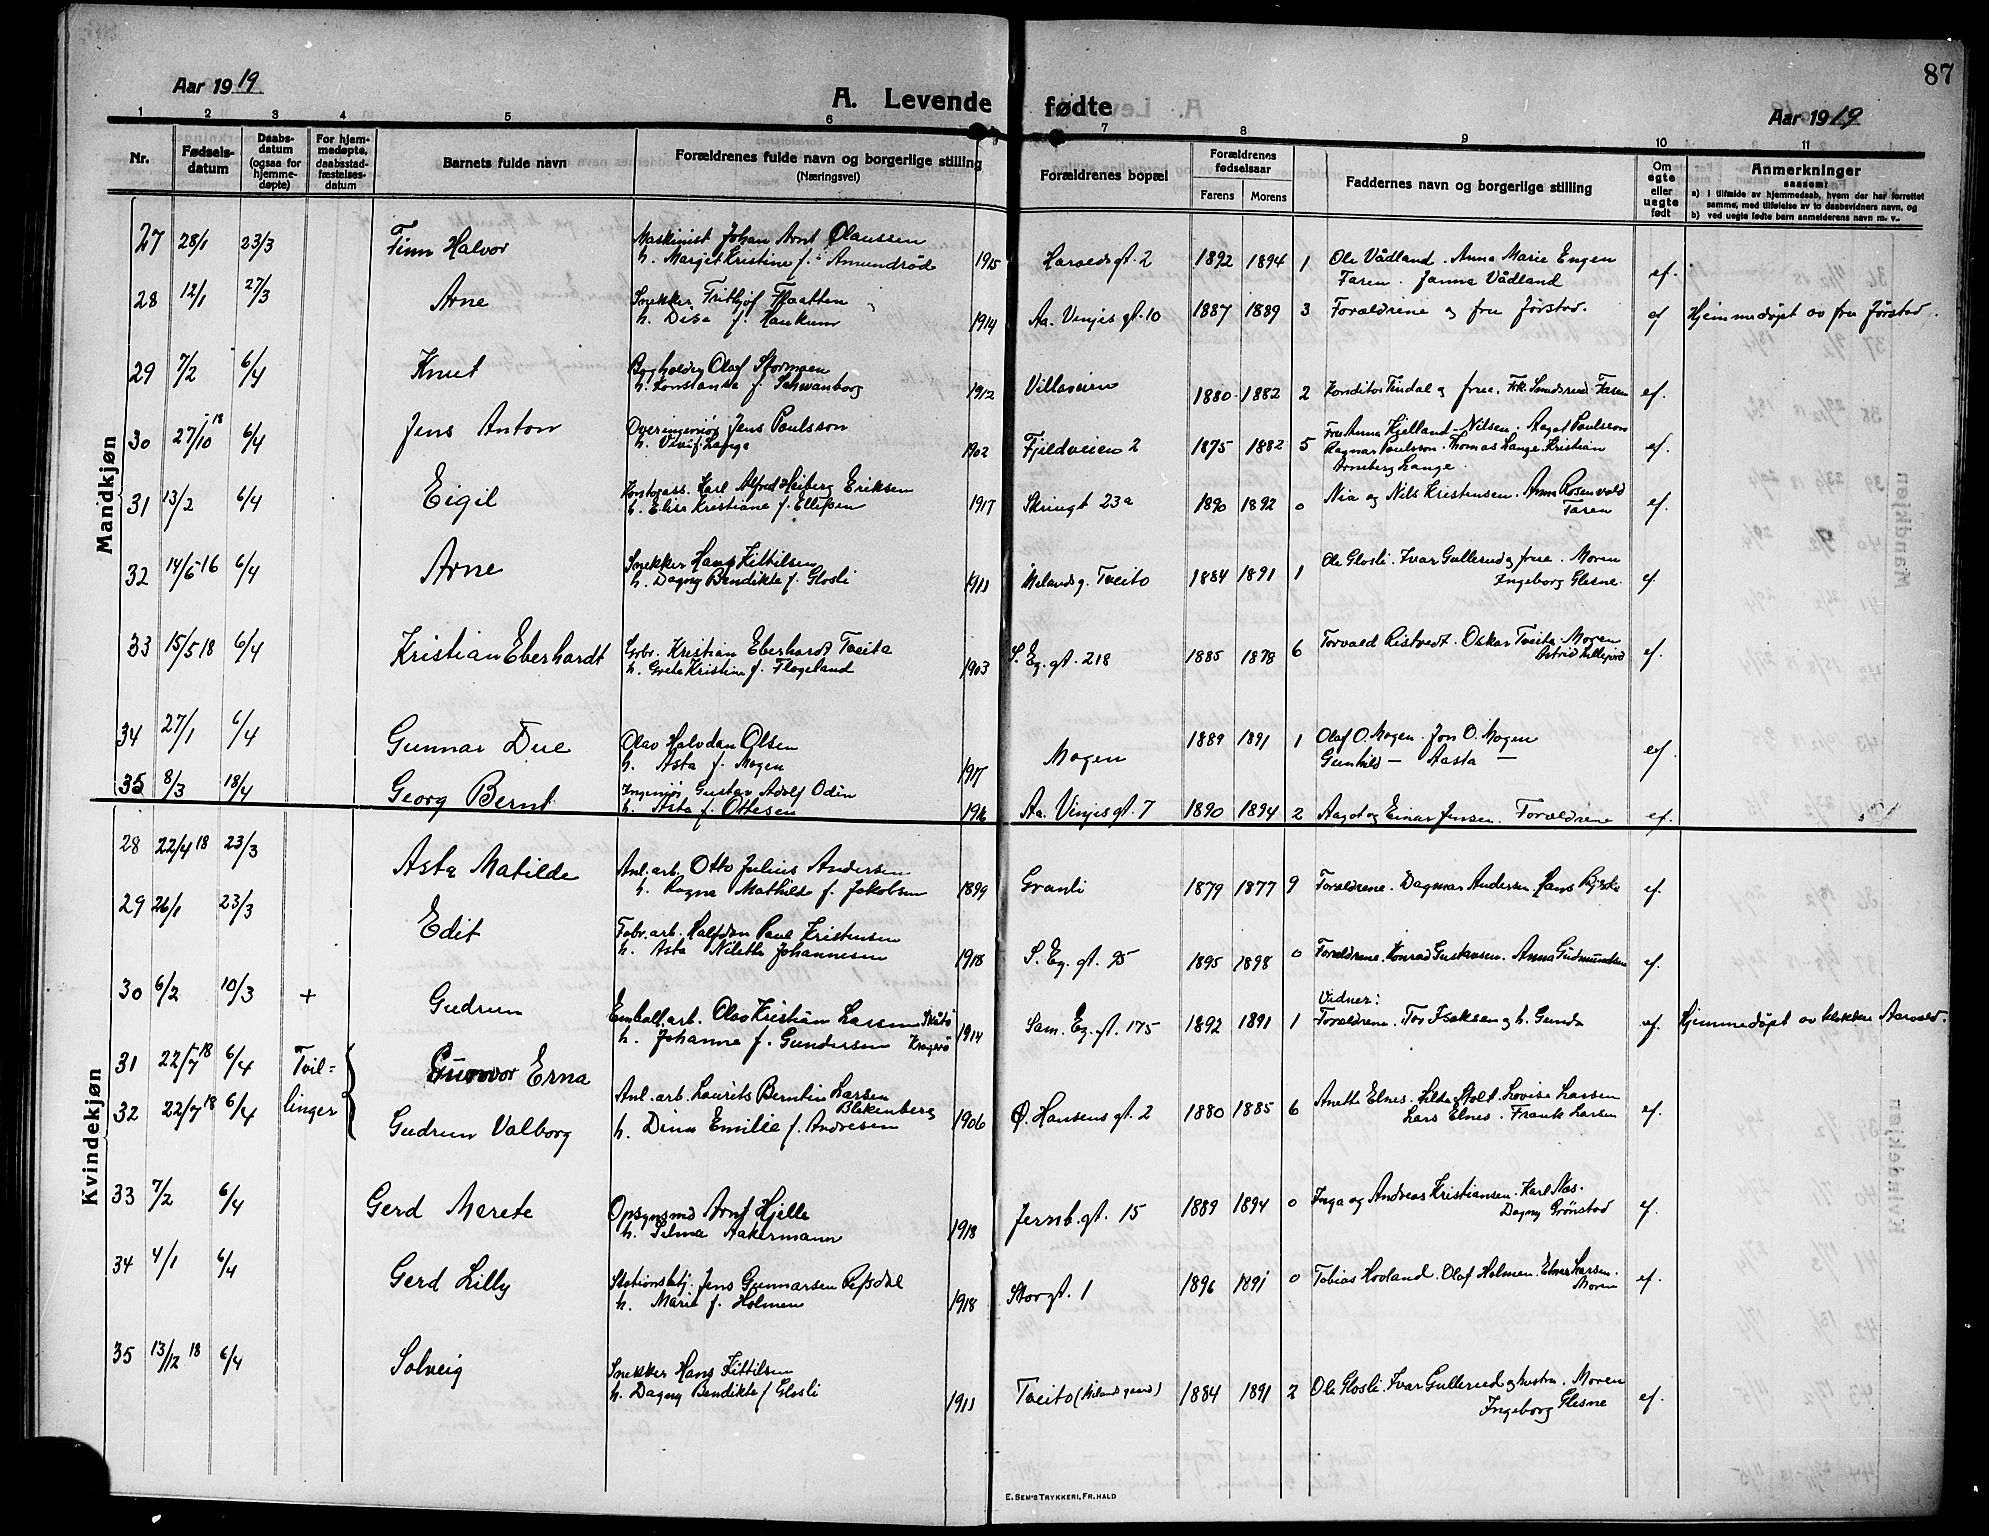 87
Aar 1919
A. Levende fødte
Aar 1919
1 2 3 4 5 6 7 8 9 10 11
Nr.
Fødsels-
datum
Daabs-
datum
(ogsaa for
hjemme-
døpte)
For hjem-
medøpte,
daabsstad-
fæstelses-
datum
Barnets fulde navn
Forældrenes fulde navn og borgerlige stilling
(Næringsvei)
Forældrenes bopæl
Forældrenes
fødselsaar
Farens Morens
Faddernes navn og borgerlige stilling
Om
egte
eller
uegte
født
Anmerkninger
saasom:
a) i tilfælde av hjemmedaab, hvem der har forrettet
samme, med tilføielse av to daabsvidners navn, og
b) ved uegte fødte barn anmelderens navn m. v..
Mandkjøn
27 28/1 23/3 Finn Halvor Maskinist Johan Arnt Olaussen
h. Marget Kristine f. Amundrød 1915 Haraldsgt. 2 1892 1894 1 Ole Vådland. Anna Marie Engen
Faren. Janna Vådland ef.
28 12/1 27/3 Arne Snekker Frithjof Flaatten
h. Disa f. Haukum 1914 Aa. Vinjes gt. 10 1887 1889 3 Forældrene og fru Jørstad. ef Hjemmedøpt av fru Jørstad.
29 7/2 6/4 Knut Olaf Stormoen
h. Konstanse f. Schwanborg 1912 Villaveien 1880 1882 2 Konditor Tindal og frue. Frk. Faren ef.
30 27/10 18 6/4 Jens Anton Overingeniør Jens Paulsson
h. Vivi f. Lange 1902 Fjeldveien 2 1875 1882 5 Fru Anna Kjelland-Nilsen. Aagot Paulsson
Ragnar Paulsson. Thomas Lange. Kristian
Arneberg Lange. ef.
31 13/2 6/4 Eigil Kontorass. Karl Alfred Heiberg Eriksen
h. Elisa Kristiane f. Ellefsen 1917 Skringt 23a 1890 1892 0 Nia og Nils Kristensen. Anna Rosenvald
Faren ef.
32 14/6 16 6/4 Arne Snekker Hans Kittilsen
h. Dagny Bendikte f. Glosli 1911 Melandsg. Tveito 1884 1891 1 Ole Glosli. Ivar Gullerud og frue. Moren
Ingeborg Glesne. ef.
33 15/5 18 6/4 Kristian Eberhardt Kristian Eberhardt Tveita
h. Grete Kristine f. Flogeland 1903 S. Eg. gt. 218 1885 1878 6 Torvald Ristvedt. Oskar Tveita. Moren
Astrid ef.
34 27/1 6/4 Gunnar Due Olav Halvdan Olsen
h. Asta f. Mogen 1917 Mogen 1889 1891 1 Olaf O. Mogen. Jon O. Mogen
Gunhild — Aasta — ef.
35 8/3 18/4 Georg Bernt Ingeniør Gustav Adolf Odin
h. Asta f. Ottesen 1916 Aa. Vinjes gt. 7 1890 1894 2 Aagot og Einar Jensen. Forældrene ef.
Kvindekjøn
28 22/4 18 23/3 Asta Matilde Anl. arb. Otto Julius Andersen
h. Ragna Mathilde f. Jakobsen 1899 Granli 1879 1877 9 Forældrene. Dagmar Andersen. Hans ef.
29 26/1 23/3 Edit Fabr. arb. Halfdan Paul Kristensen
h. Asta Nilette Johannesen 1918 S. Eg. gt. 95 1895 1898 0 Forældrene. Konrad Gustavsen. Anna Gudmundsen ef.
30 6/2 10/3 + Gudrun Emball. arb. Olav Kristian Larsen Skåtø
h. Johanne f. Gundersen Kragerø 1914 Sam. Eg. gt. 175 1892 1891 1 Vidner:
Forældrene. Tor Isaksen og h. Gunda ef. Hjemmedøpt av klokker Aarvold.
31 22/7 18 6/4 Tvil= Gunvor Erna
32 22/7 18 6/4 linger Gudrun Valborg Anl. arb. Laurits Berntin Larsen
Blekenberg
h. Dina Emilie f. Andresen 1906 O. Hansens gt. 2 1880 1885 6 Anette Elnes. Hilda Stolt. Lovise Larsen
Lars Elnes. Frank Larsen ef.
33 7/2 6/4 Gerd Merete Opsynsmd Arnt Hjelle
h. Selma Aakermann 1918 Jernb. gt. 15 1889 1894 0 Inga og Andreas Kristiansen. Karl Næs.
Dagny Grønstad ef.
34 4/1 6/4 Gerd Lilly Stationsbetj. Jens Gunnarsen Refsdal
h. Marie f. Holmen 1918 Storgt. 1 1896 1891 0 Tobias Hovland. Olaf Holmen. Elna Larsen.
Moren ef.
35 13/12 18 6/4 Solveig Snekker Hans Kittilsen
h. Dagny Bendikte f. Glosli 1911 Tveito (Melandgaard) 1884 1891 2 Ole Glosli. Ivar Gullerud og hustru. Moren
Ingeborg Glesne ef.
E. SEM'S TRYKKERI, FR. HALD